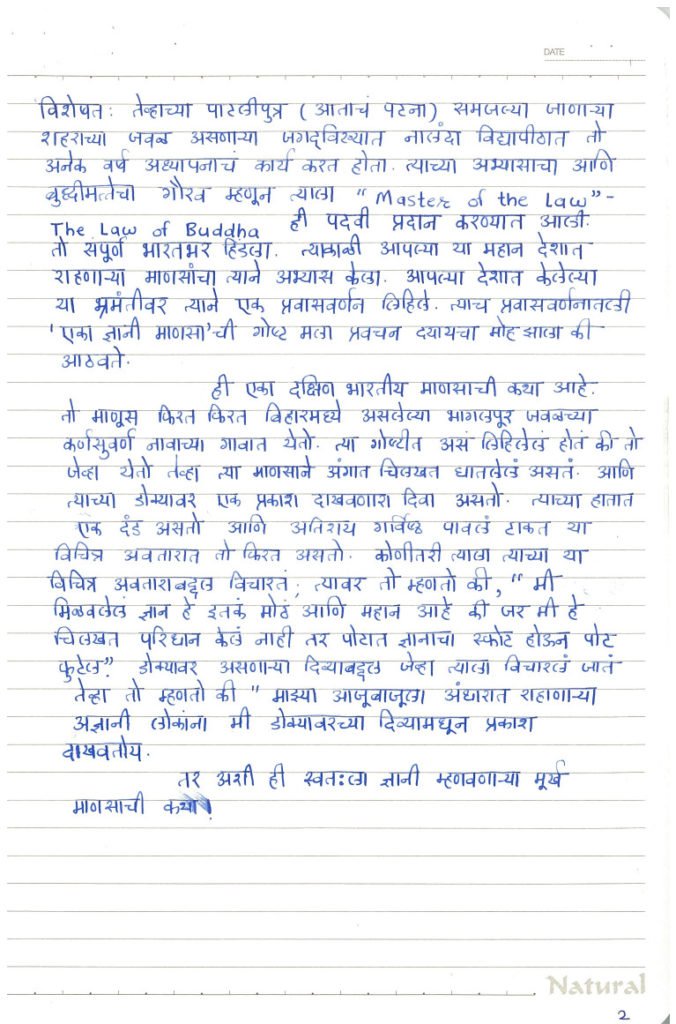 DATE
विशेषतः तेव्हाच्या पाटलीपुत्र ( आताचं पटना) समजल्या जाणाऱ्या
शहराच्या जवळ असणाऱ्या जगद्विख्यात नालंदा विद्यापीठात तो
अनेक वर्ष अध्यापनाचं कार्य करत होता. त्याच्या अभ्यासाचा आणि
बुध्दीमत्तेचा गौरव म्हणून त्याला “ Master of the Law”-
The Law of Buddha ही पदवी प्रदान करण्यात आली.
तो संपूर्ण भारतभर हिंडला. त्याकाळी आपल्या या महान देशात
राहणाऱ्या माणसांचा त्याने अभ्यास केला. आपल्या देशात केलेल्या
या भ्रमंतीवर त्याने एक प्रवासवर्णन लिहिले. त्याच प्रवासवर्णनातली
'एका ज्ञानी माणसा'ची गोष्ट मला प्रवचन द्यायचा मोह झाला की
आठवते.
ही एका दक्षिण भारतीय माणसाची कथा आहे.
तो माणूस फिरत फिरत बिहारमध्ये असलेल्या भागलपूर जवळच्या
कर्णसुवर्ण नावाच्या गावात येतो. त्या गोष्टीत असं लिहिलेलं होतं की तो
जेव्हा येतो तेव्हा त्या माणसाने अंगात चिलखत घातलेलं असतं. आणि
त्याच्या डोक्यावर एक प्रकाश दाखवणारा दिवा असतो. त्याच्या हातात
एक दंड असतो आणि अतिशय गर्विष्ठ पावलं टाकत या
विचित्र अवतारात तो फिरत असतो. कोणीतरी त्याला त्याच्या या
विचित्र अवताराबद्दल विचारतं; त्यावर तो म्हणतो की, “ मी
मिळवलेलं ज्ञान हे इतकं मोठं आणि महान आहे की जर मी हे
चिलखत परिधान केलं नाही तर पोटात ज्ञानाचा स्फोट होऊन पोट
फुटेल”. डोक्यावर असणाऱ्या दिव्याबद्दल जेव्हा त्याला विचारलं जातं
तेव्हा तो म्हणतो की “ माझ्या आजूबाजूला अंधारात राहाणाऱ्या
अज्ञानी लोकांना मी डोक्यावरच्या दिव्यामधून प्रकाश
दाखवतोय.
तर अशी ही स्वतःला ज्ञानी म्हणवणाऱ्या मूर्ख
माणसाची कथा!
Natural
2